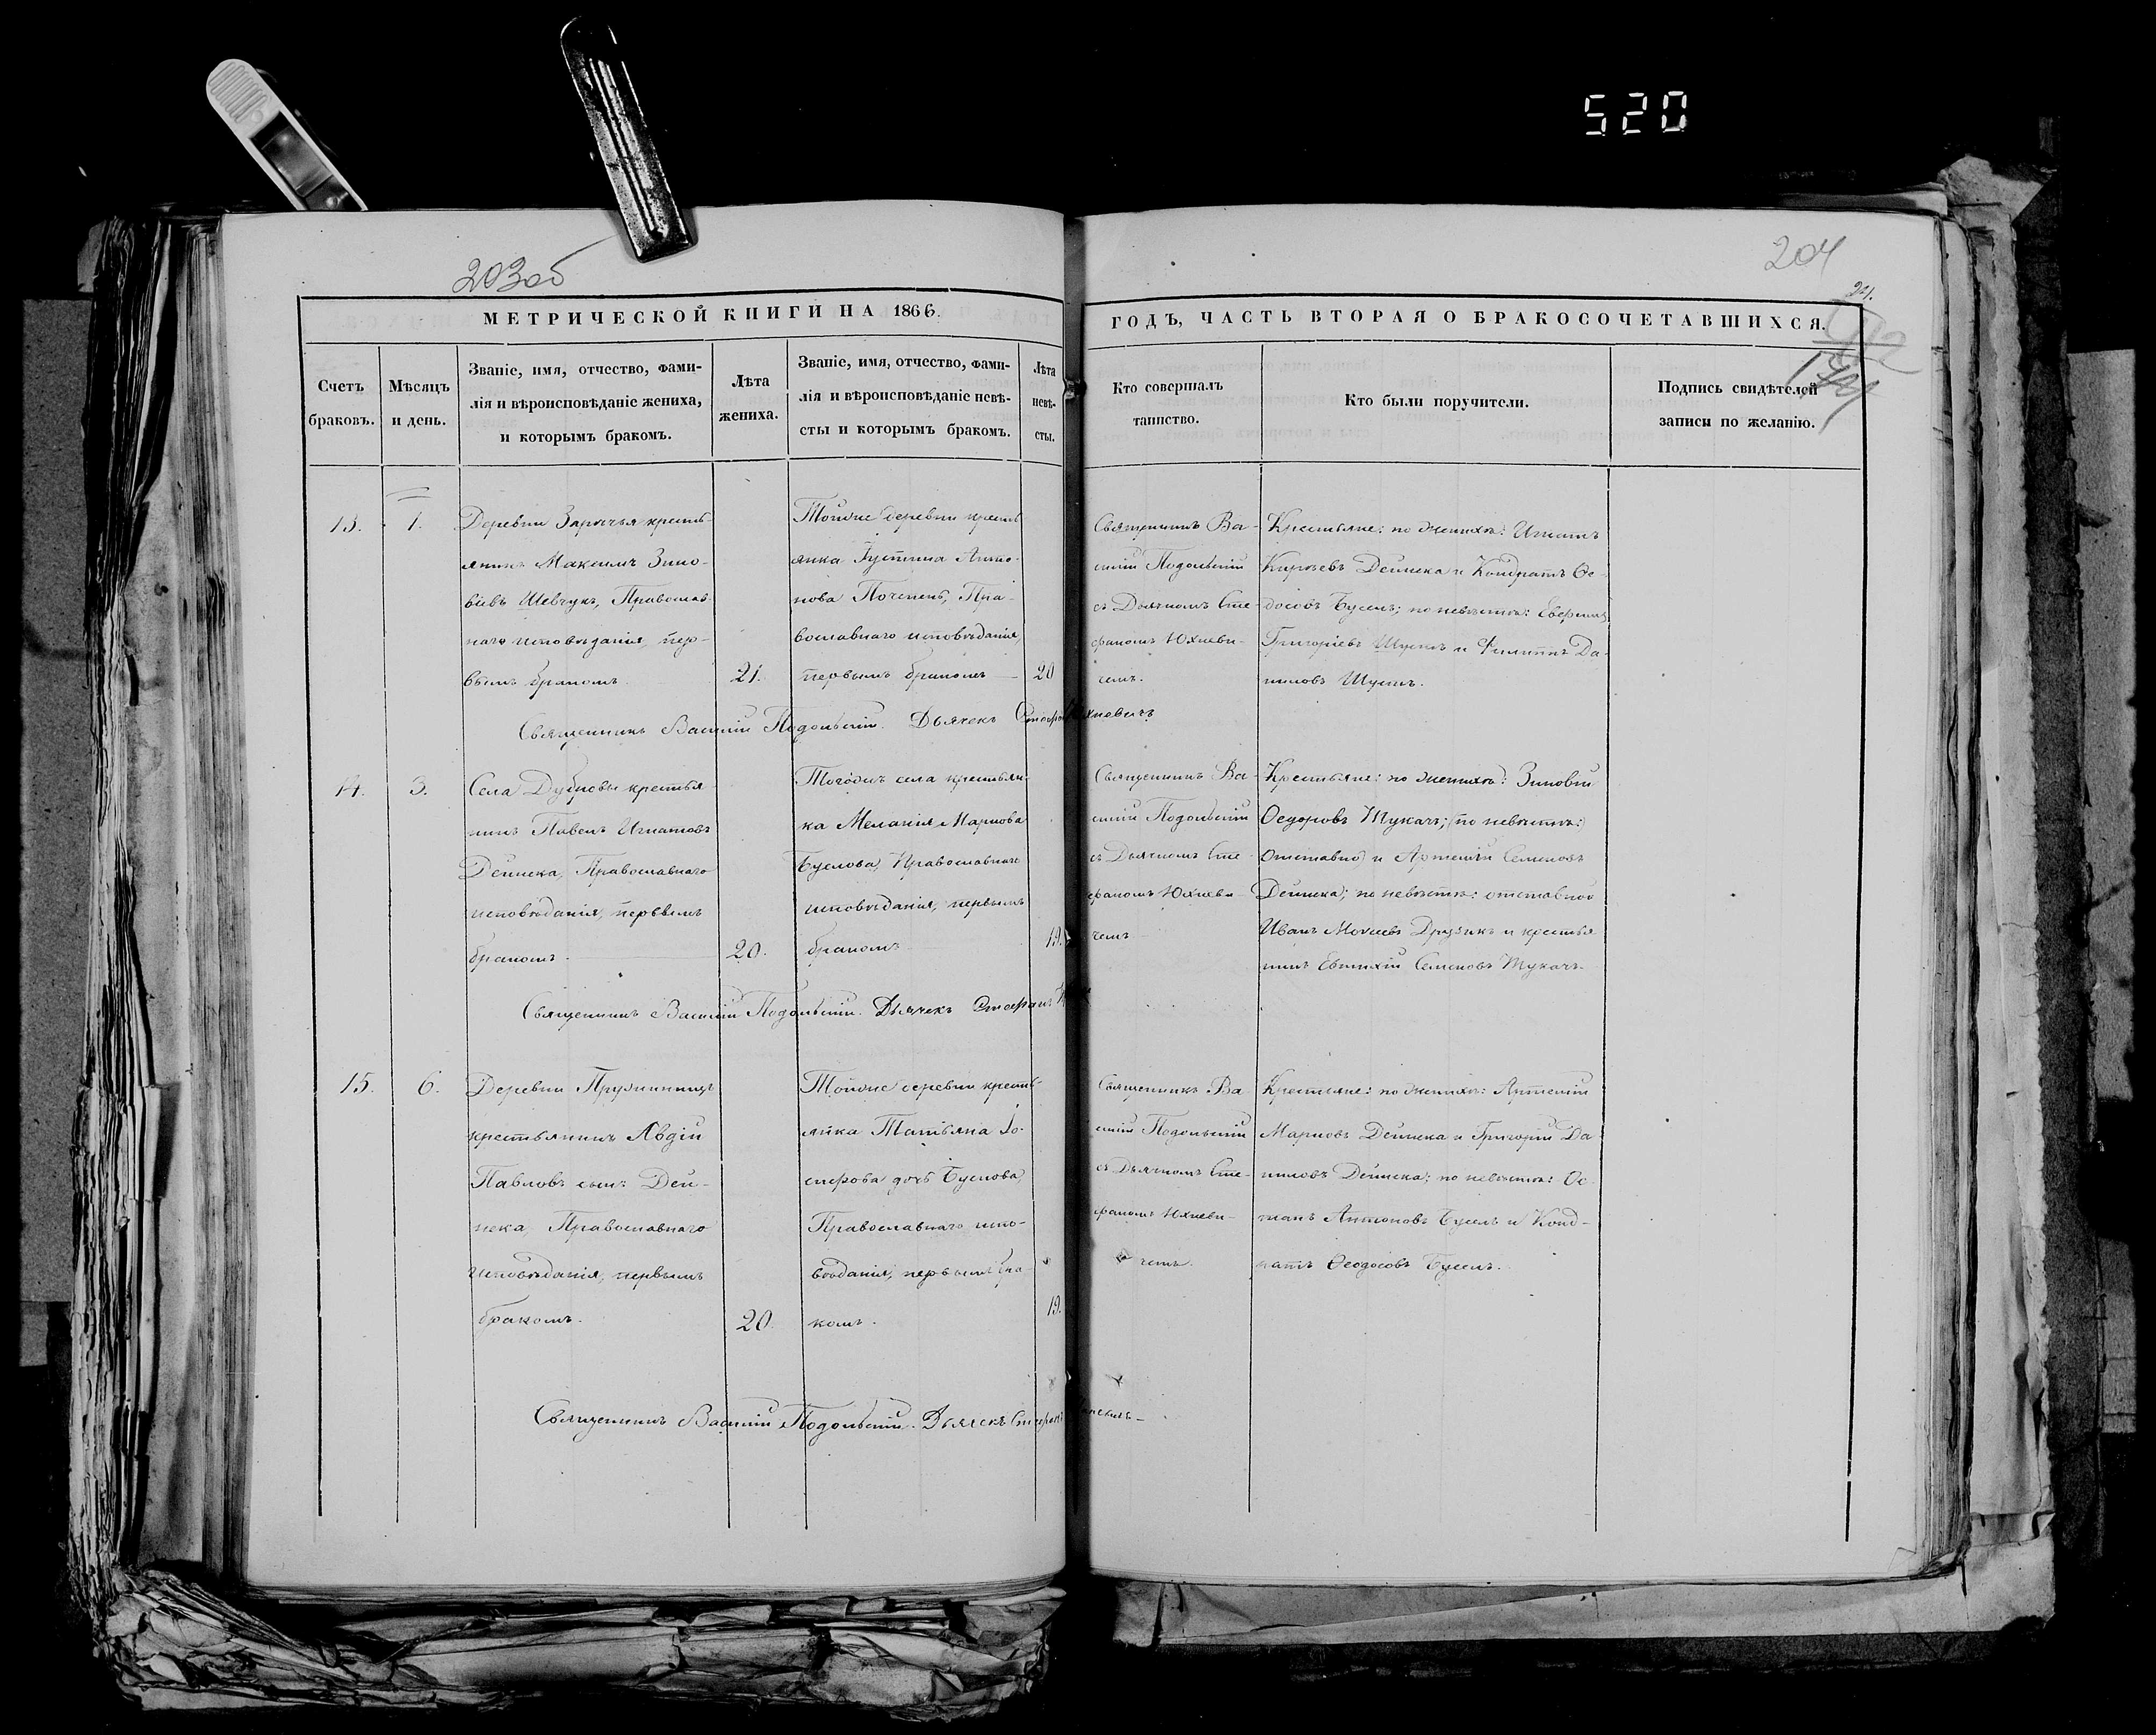 520
203об
204
24.
МЕТРИЧЕСКОЙ КНИГИ НА 1866.
ГОДЪ, ЧАСТЬ ВТОРАЯ О БРАКОСОЧЕТАВШИХСЯ.
Счетъ браковъ.
Мѣсяцъ и день.
Званіе, имя, отчество, фами-
лія и вѣроисповѣданіе жениха,
и которымъ бракомъ.
Лѣта жениха.
Званіе, имя, отчество, фами-
лія и вѣроисповѣданіе невѣ-
сты и которымъ бракомъ.
Лѣта невѣ-
сты.
Кто совершалъ
таинство.
Кто были поручители.
Подпись свидѣтелей
записи по желанію.
13.
1.
Деревни Заречья кресть-
янинъ Максимъ Зино-
віевъ Шевчукъ, Православ-
наго исповѣданія, пер-
вымъ бракомъ.
21.
Тойже деревни кресть
янка Іустина Анто-
нова Почепень, Пра-
вославнаго исповѣданія,
первымъ бракомъ
20
Священникъ Ва-
силій Подольскій
съ Дьячкомъ Сте-
фаномъ Юхневи-
чемъ.
Крестьяне: по женихѣ: Игнатъ
Киріевъ Дейнека и Кондратъ Ѳе-
досовъ Бусель; по невѣстѣ:
Григоріевъ Шустъ и Филиппъ Да-
ниловъ Шустъ.
Священникъ Василій Подольскій. Дьячекъ Стефанъ Юхневичъ
14.
3.
Села Дубновы крестья
нинъ Павелъ Игнатовъ
Дейнека, Православнаго
исповѣданія, первымъ
бракомъ.
20.
Тогожъ села крестьян-
ка Меланія Маркова
Буслова, Православнаго
исповѣданія, первымъ
бракомъ
19.
Священникъ Ва-
силій Подольскій
съ Дьячкомъ Сте-
фаномъ Юхневи-
чемъ
Крестьяне: по женихѣ: Зиновій
Ѳедоровъ Тукачъ; (по невѣстѣ:
Отставно) и Артемій Семеновъ
Дейнека; по невѣстѣ: отставной
Иванъ Друзикъ и крестья
нинъ Евтихій Семеновъ Тукачъ.
Священникъ Василій Подольскій. Дьячекъ Стефанъ
15.
6.
Деревни Пружиницъ
крестьянинъ Авдій
Павловъ сынъ Дей-
нека, Православнаго
исповѣданія, первымъ
бракомъ.
20.
Тойже деревни кресть-
янка Татьяна Іо-
сифова дочь Буслова
Православнаго испо-
вѣданія, первымъ бра-
комъ.
19.
Священникъ Ва-
силій Подольскій
съ Дьячкомъ Сте-
фаномъ Юхневи-
чемъ.
Крестьяне: по женихѣ: Артемій
Марковъ Дейнека и Григорій Да
ниловъ Дейнека; по невѣстѣ: Ос
тапъ Антоновъ Бусель и Конд-
ратъ Ѳеодосовъ Бусель.
Священникъ Василій Подольскій. Дьячекъ Стефанъ Юхневичъ